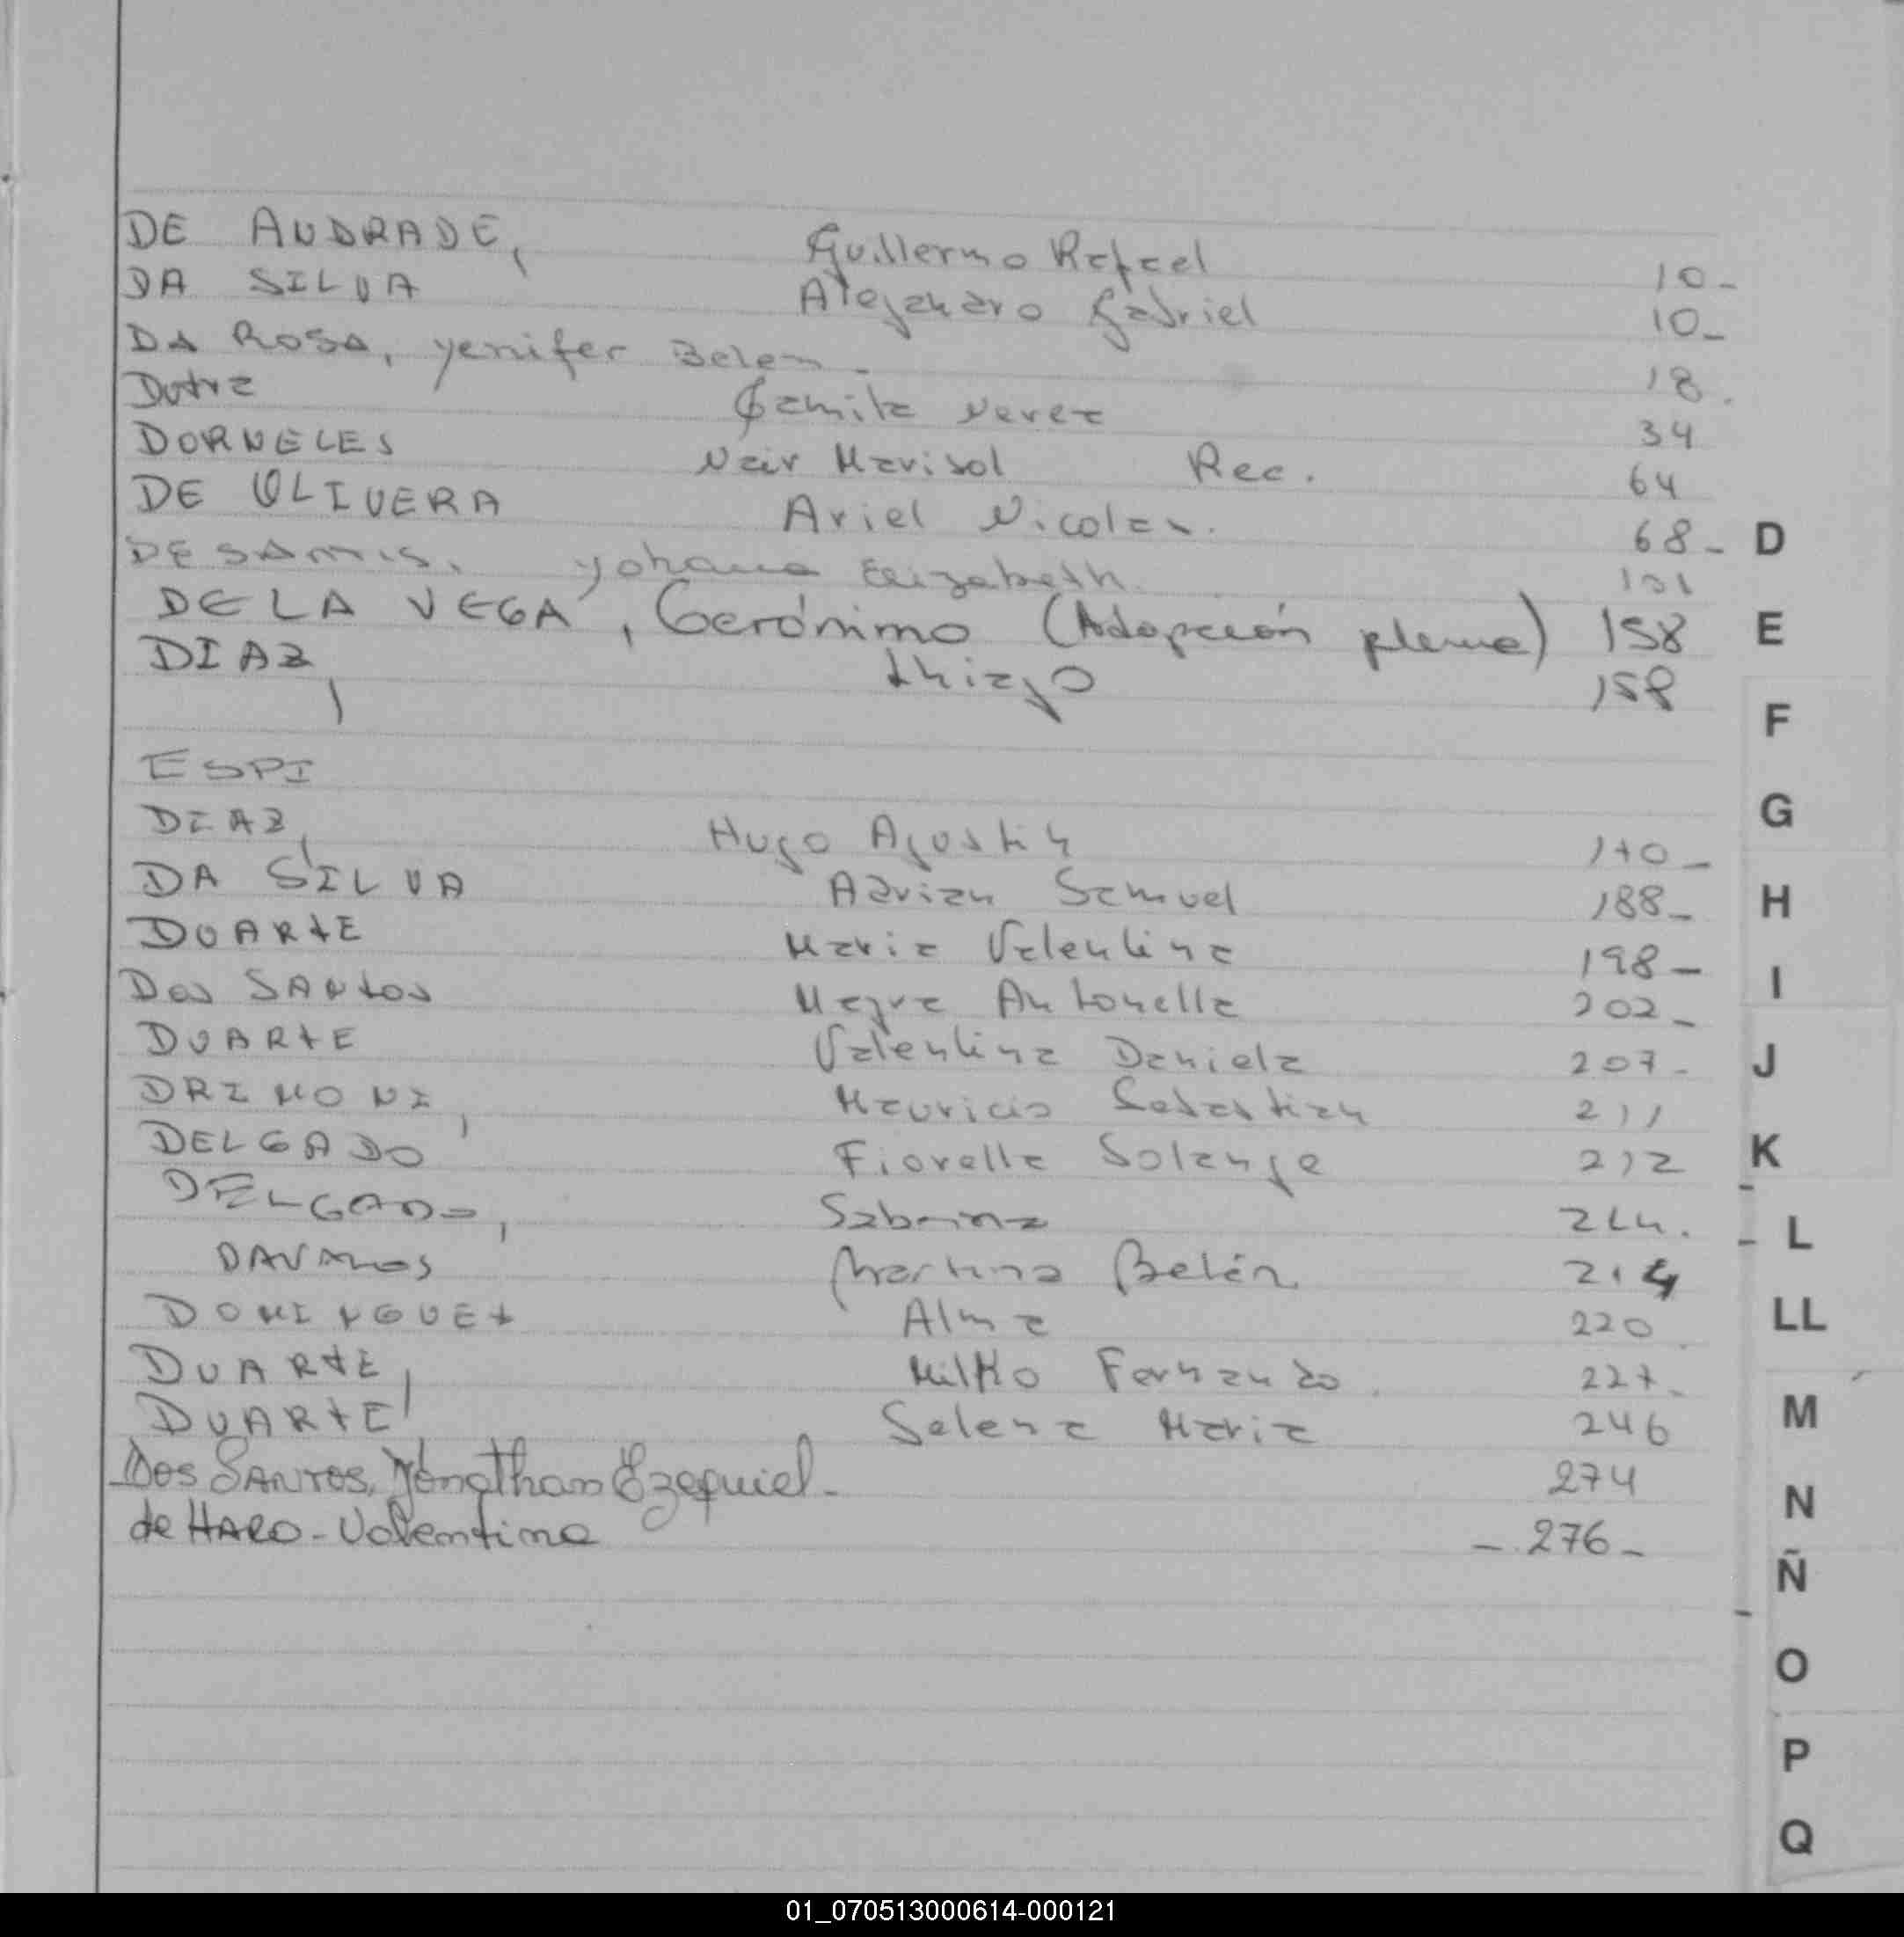 DE ANDRADE, Guillermo Rafael 10-
DA SILVA Alejandro Gabriel 10-
DA ROSA, yenifer Belen - 18.
Dutra Camila Nerea 34
DORNELES Nair Marisol Rec. 64
DE OLIVERA Ariel Nicolas. 68-
yohana Elizabeth. 101
DE LA VEGA, Gerónimo (Adopción plena) 158
DIAZ, thiago 158
ESPI
DIAZ, Hugo Agustin 170-
DA SILVA Adrian Samuel 188-
DUARTE Maria Valentina 198-
Dos SANtos Antonella 202-
DUARTE Valentina Daniela 207-
DRIMONI, Mauricio Sebastian 211
DELGADO Fiorella Solange 212
DELGADO, Sabrina 214.
DAVALOS Martina Belén. 214
DOMINGUEZ Alma 220
DUARTE, Milko Fernando. 227-
DUARTE Selena Maria 246
Dos SANTOS, Jonathan Ezequiel- 274
de HARO-Valentina - 276-
D
E
F
G
H
I
J
K
L
LL
M
N
Ñ
O
P
Q
01_070513000614-000121